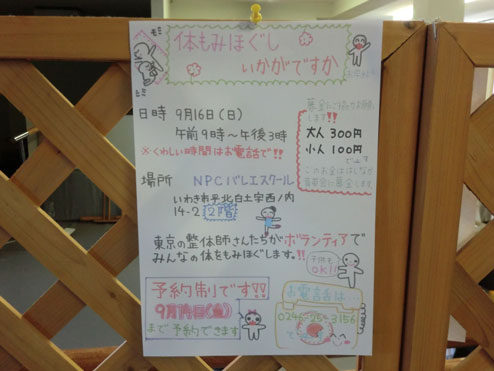 体もみほぐし
いかがですか
モミ
モミ
日時 9月16日(日)
午前9時～午後3時
※くわしい時間はお電話で!!
します!!
大人 300円
小人 100円
場所 NPCバレエスクール
いわき市平北白土字西ノ内
14-2 2階
東京の整体師さんたちがボランティアで
みんなの体をもみほぐします。!!
子供も
OK!!
予約制です!!
9月14日(金)
まで予約できます
お電話は…
0246-25-3156